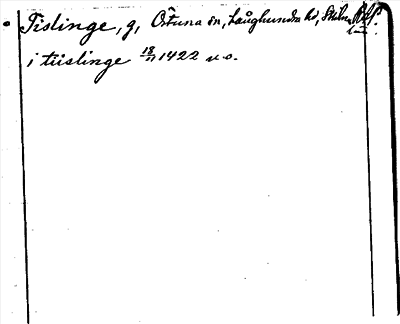 Tislinge, g, Östuna sn, Långhundra hd, Sthlms
län.
i tiislinge 18/11 1422 v. o.